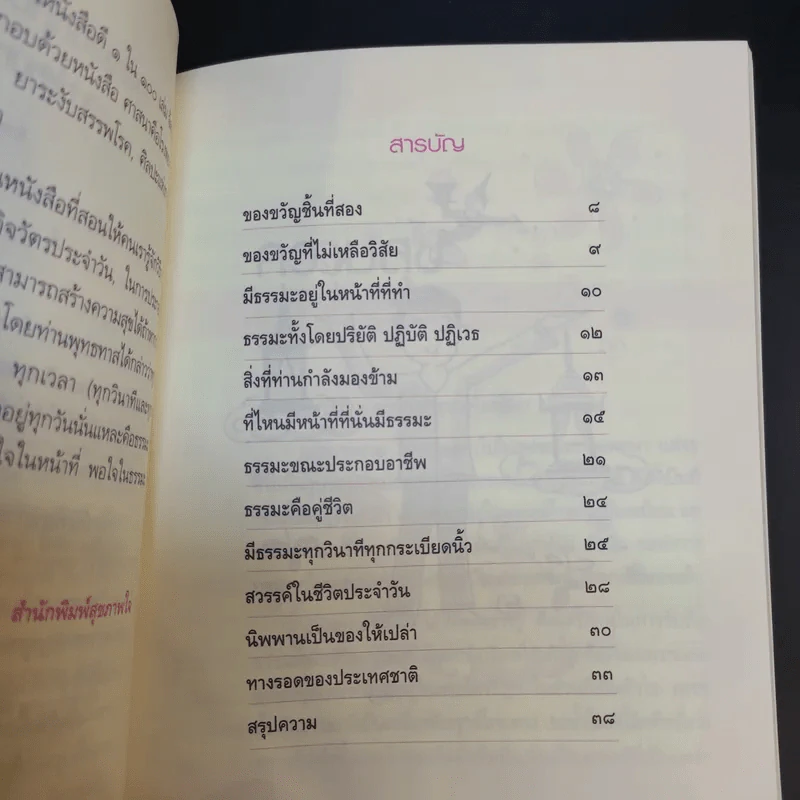 หนังสือดี ๑ ใน ๑๐๐
กอบด้วยหนังสือ
ยาระงับสรรพโรค,
หนังสือที่สอนให้คนเรารู้จัก
กิจวัตรประจำวัน,
สามารถสร้างความสุขได้
โดยท่านพุทธทาสได้กล่าว
ทุกเวลา (ทุกวินาที
อยู่ทุกวันนั่นแหละคือธรรมะ
ในหน้าที่ พอใจในธรรมะ
สำนักพิมพ์สุขภาพใจ
สารบัญ
ของขวัญชิ้นที่สอง ๘
ของขวัญที่ไม่เหลือวิสัย ๙
มีธรรมะอยู่ในหน้าที่ที่ทำ ๑๐
ธรรมะทั้งโดยปริยัติ ปฏิบัติ ปฏิเวธ ๑๒
สิ่งที่ท่านกำลังมองข้าม ๑๓
ที่ไหนมีหน้าที่ที่นั่นมีธรรมะ ๑๕
ธรรมะขณะประกอบอาชีพ ๒๑
ธรรมะคือคู่ชีวิต ๒๔
มีธรรมะทุกวินาทีทุกกระเบียดนิ้ว ๒๕
สวรรค์ในชีวิตประจำวัน ๒๘
นิพพานเป็นของให้เปล่า ๓๐
ทางรอดของประเทศชาติ ๓๓
สรุปความ ๓๘